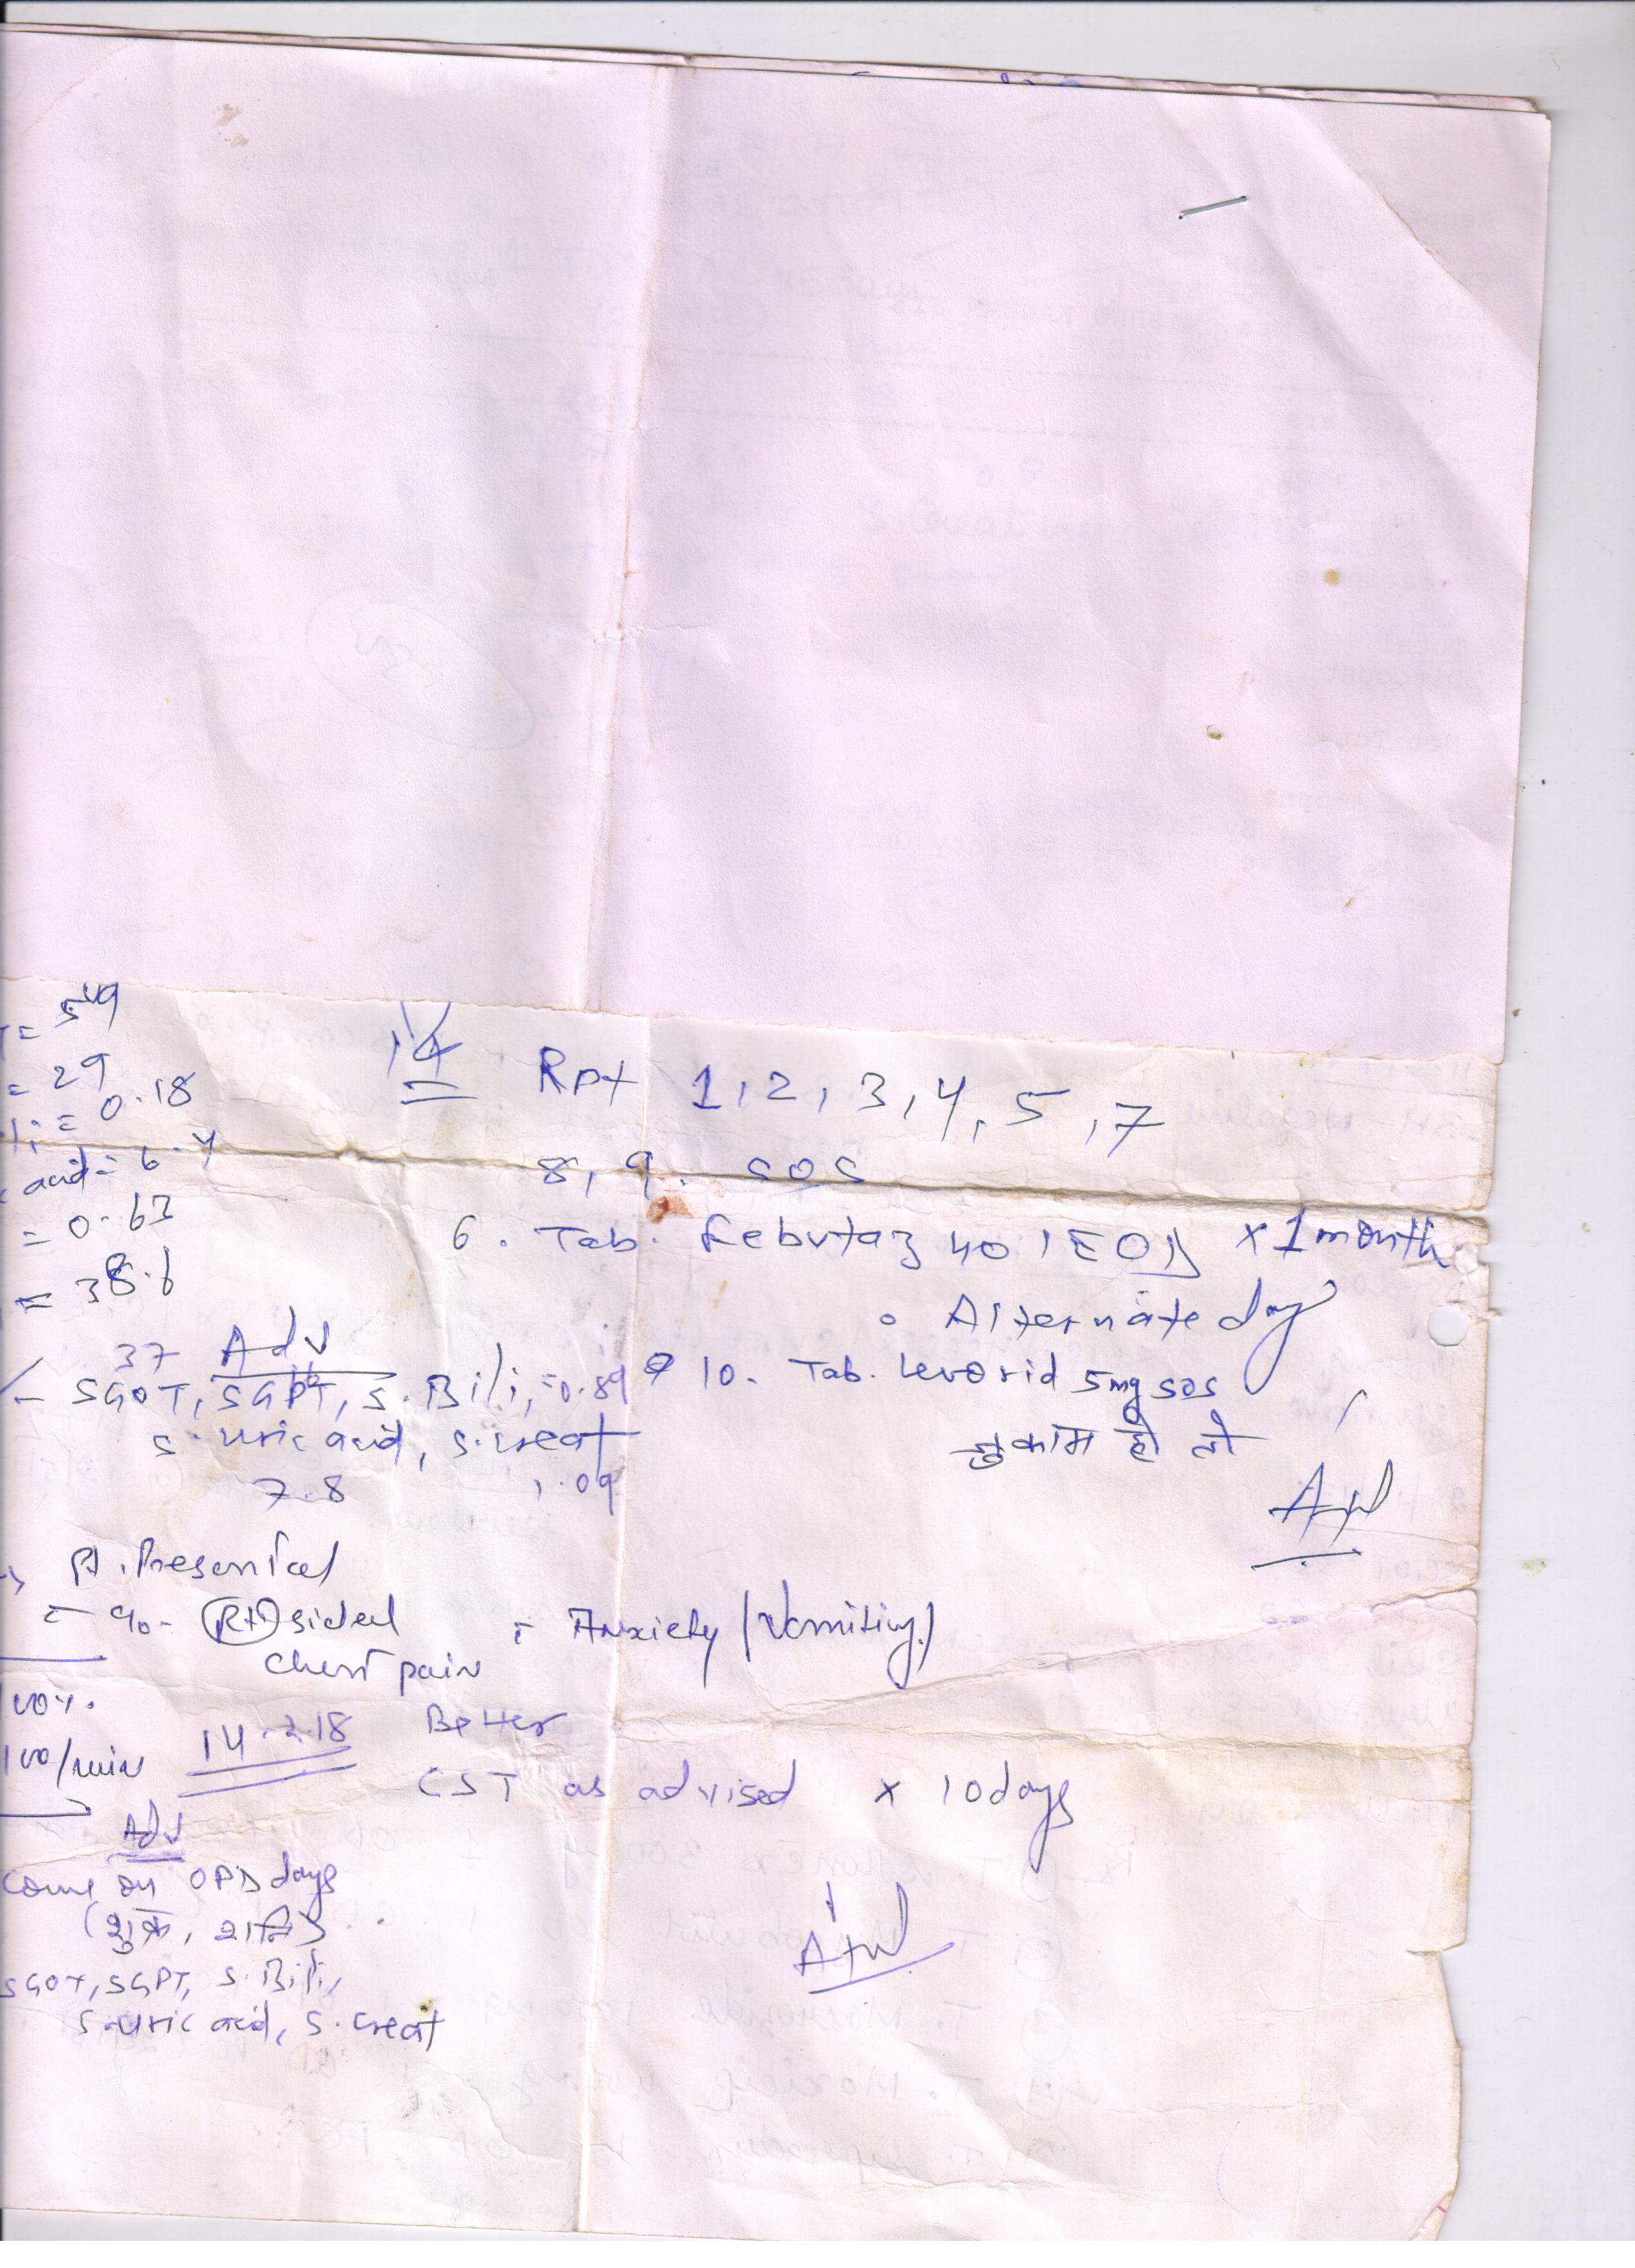 = 29
= 0.18
Rpt 1, 2, 3, 4, 5, 7
acid = 6.4
8, 9. SOS
= 0.63
6. Tab. Febutaz 40 1 EOD x 1 month
= 38.6
Alternate day
37 Adv
SGOT, SGPT, S. Bili, =0.89
10. Tab. Levorid 5mg sos
S. uric acid, S. creat
जुकाम हो तो
7.8 1.09
Pt. Presented
c/o - (Rt) sided
chest pain
Anxiety / Vomiting
14.2.18 Better
100/min
CST as advised x 10 days
Adv
Come on OPD days
(शुक्र, शनि)
SGOT, SGPT, S. Bili,
S. uric acid, S. creat